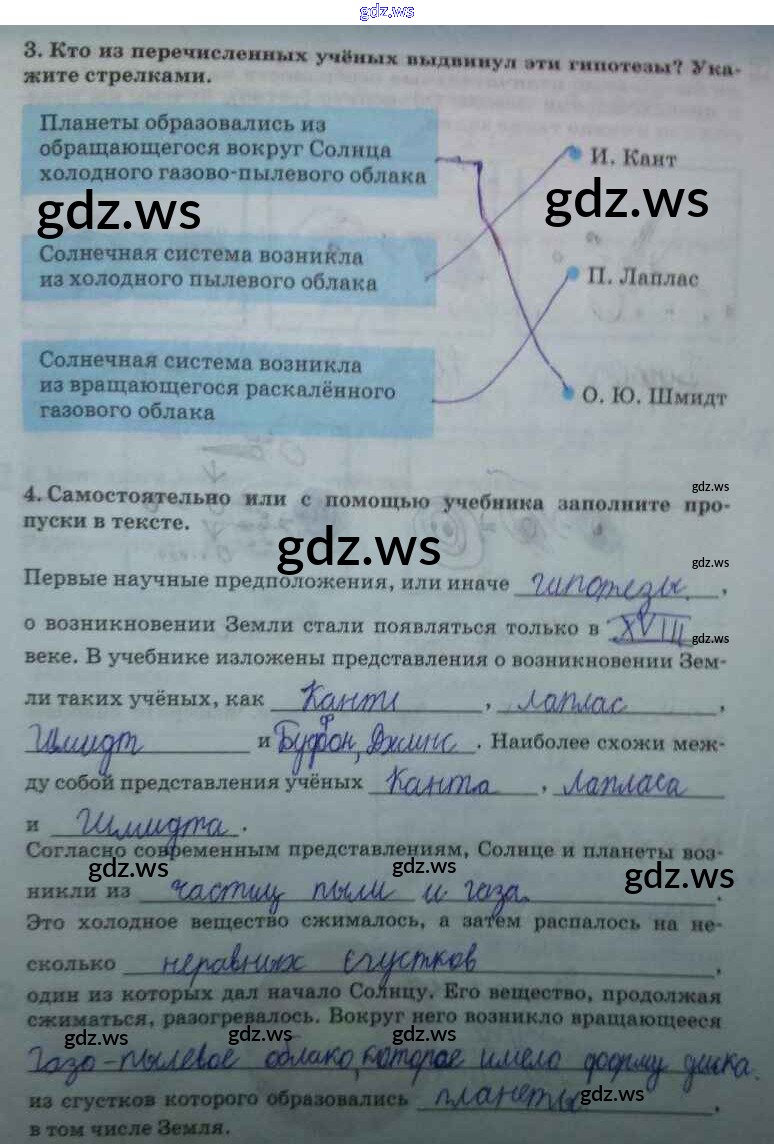 gdz.ws
3. Кто из перечисленных учёных выдвинул эти гипотезы? Ука-
жите стрелками.
Планеты образовались из
обращающегося вокруг Солнца
холодного газово-пылевого облака
И. Кант
gdz.ws
gdz.ws
Солнечная система возникла
из холодного пылевого облака
П. Лаплас
Солнечная система возникла
из вращающегося раскалённого
газового облака
О. Ю. Шмидт
gdz.ws
4. Самостоятельно или с помощью учебника заполните про-
пуски в тексте.
gdz.ws
gdz.ws
Первые научные предположения, или иначе гипотезы,
о возникновении Земли стали появляться только в XVIII
gdz.ws
веке. В учебнике изложены представления о возникновении Зем-
ли таких учёных, как Кант, лаплас,
Шмидт и Буффон, Джинс. Наиболее схожи меж-
ду собой представления учёных Канта, лапласа
и Шмидта.
Согласно современным представлениям, Солнце и планеты воз-
gdz.ws
gdz.ws
gdz.ws
никли из частиц пыли и газа.
Это холодное вещество сжималось, а затем распалось на не-
сколько неравных сгустков,
один из которых дал начало Солнцу. Его вещество, продолжая
сжиматься, разогревалось. Вокруг него возникло вращающееся
gdz.ws
gdz.ws
gdz.ws
Газо-пылевое облако, которое имело форму диска.
gdz.ws
из сгустков которого образовались планеты,
в том числе Земля.